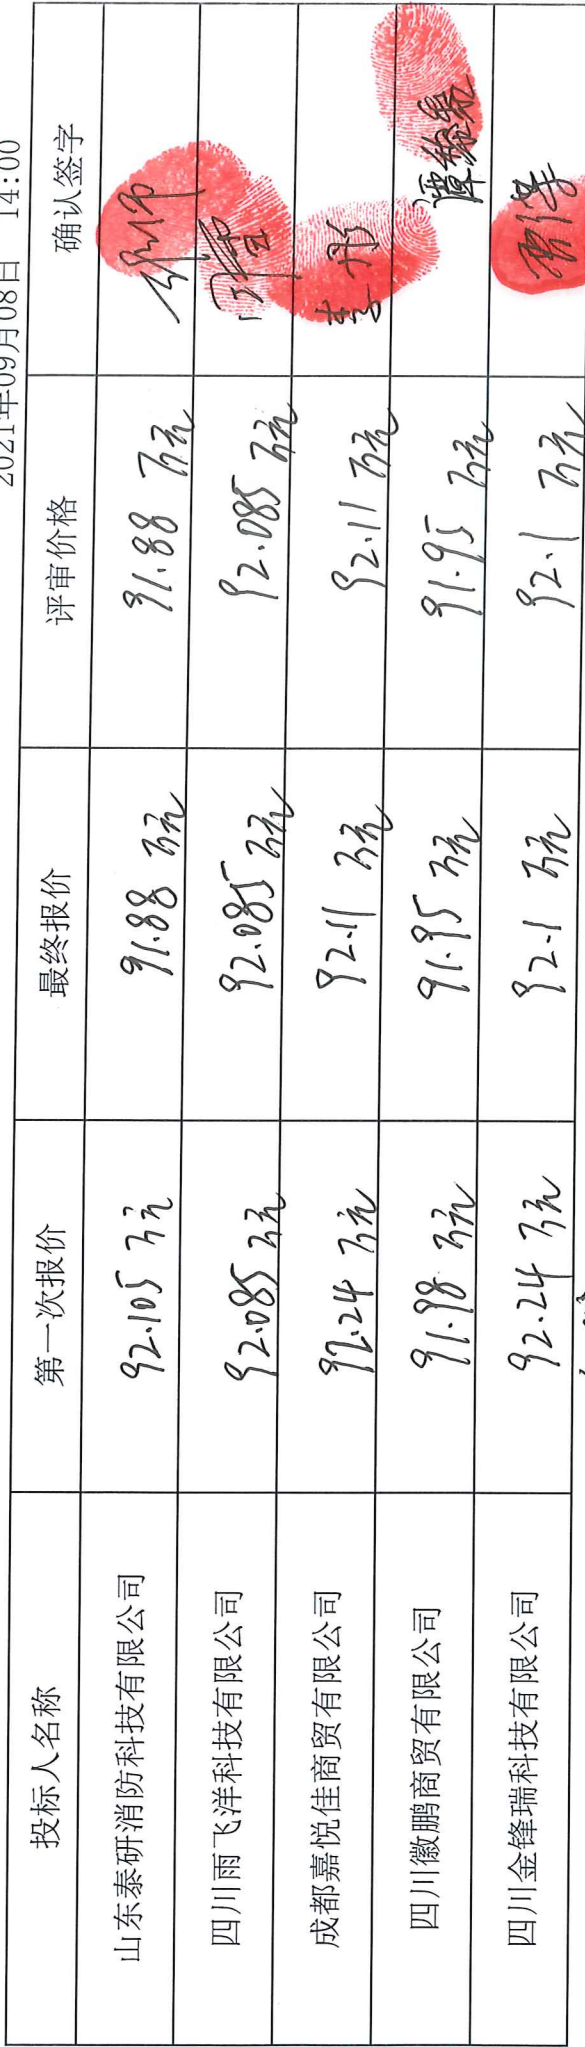 2021年09月08日 14:00
投标人名称 第一次报价 最终报价 评审价格 确认签字
山东泰研消防科技有限公司 92.105万元 91.88万元 91.88万元
四川雨飞洋科技有限公司 92.085万元 92.085万元 92.085万元
成都嘉悦佳商贸有限公司 92.24万元 92.11万元 92.11万元 李彤
四川徽鹏商贸有限公司 91.98万元 91.95万元 91.95万元
四川金锋瑞科技有限公司 92.24万元 92.1万元 92.1万元